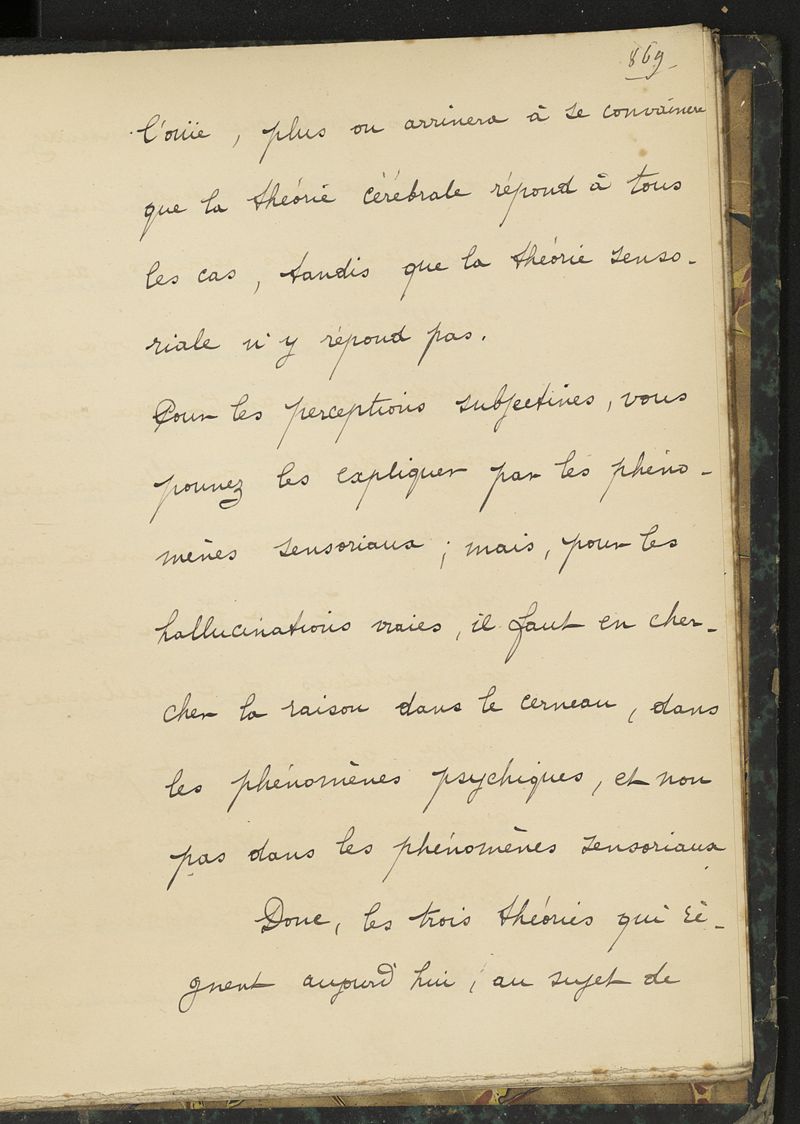 869
l'ouïe, plus on arrivera à se convaincre
que la théorie cérébrale répond à tous
les cas, tandis que la théorie senso-
riale n'y répond pas.
Pour les perceptions subjectives, vous
pouvez les expliquer par les phéno-
mènes sensoriaux ; mais, pour les
hallucinations vraies, il faut en cher-
cher la raison dans le cerveau, dans
les phénomènes psychiques, et non
pas dans les phénomènes sensoriaux.
Donc, les trois théories qui rè-
gnent aujourd'hui, au sujet de